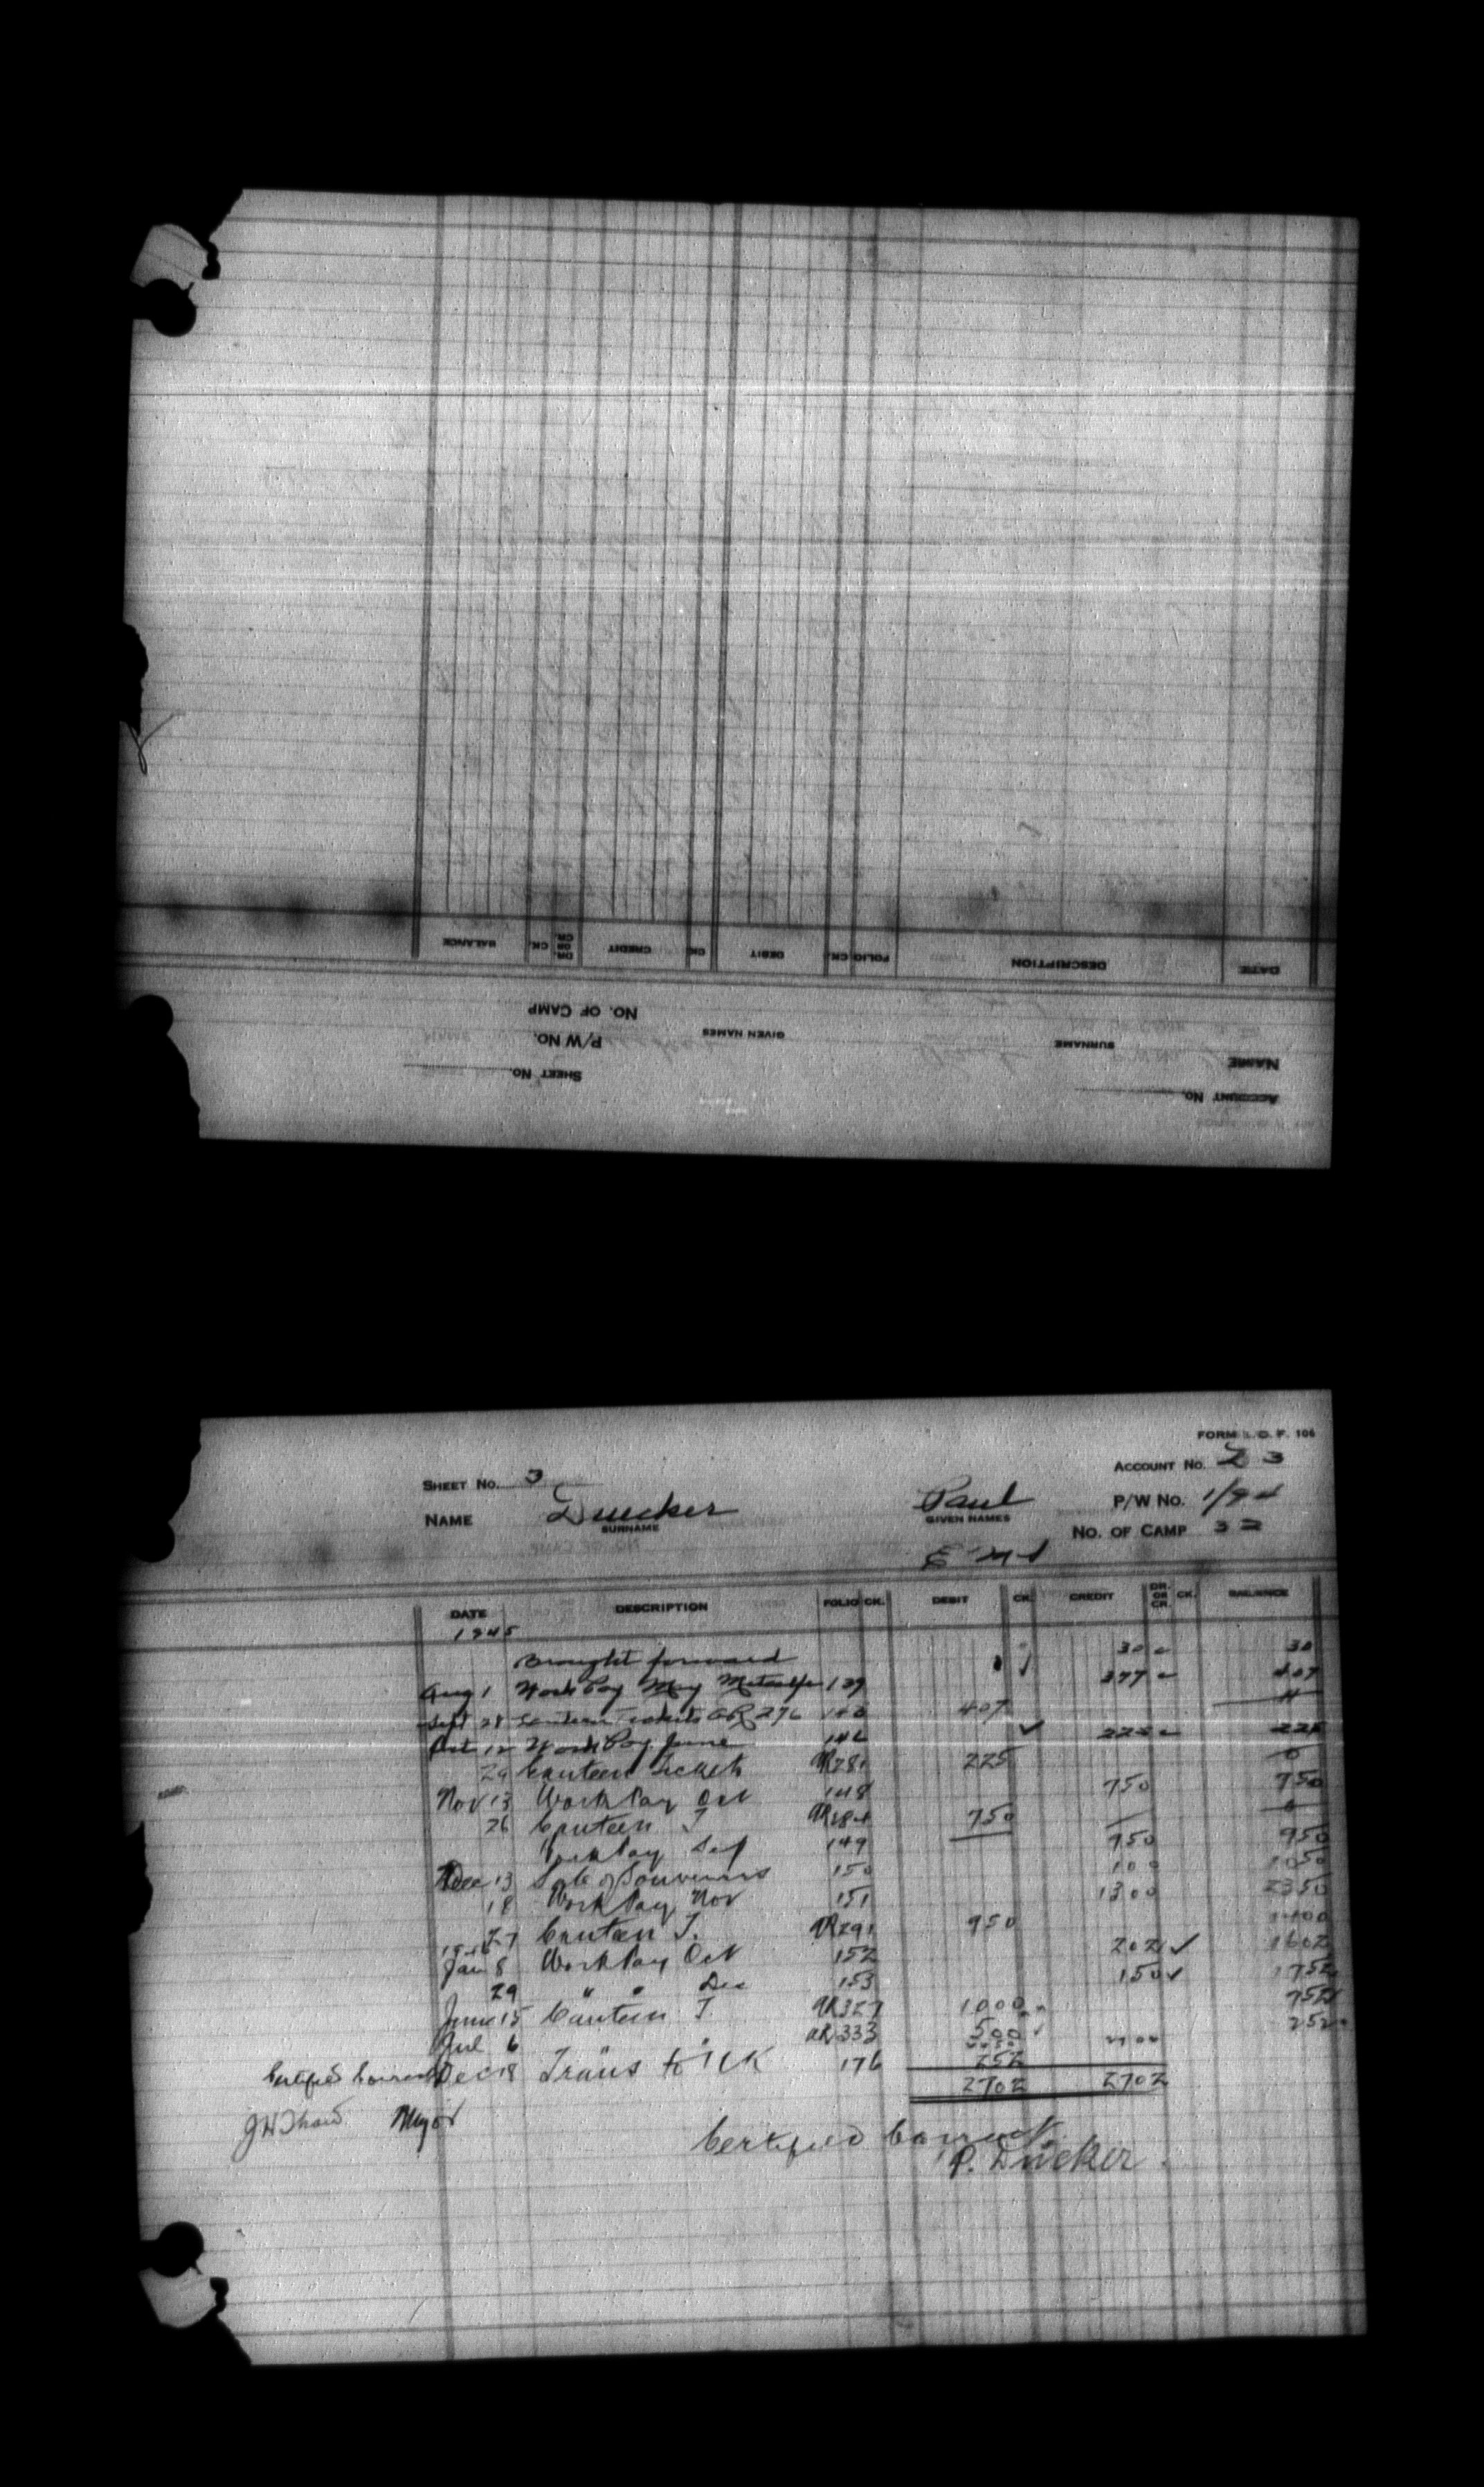 BALANCE CK. DR. OR CR. CREDIT CK. DEBIT CK. FOLIO DESCRIPTION DATE
NO. OF CAMP
P/W NO. GIVEN NAMES SURNAME
NAME
SHEET NO.
ACCOUNT NO.
FORM I.O.F. 106
SHEET NO. 3 ACCOUNT NO. 23
NAME Duecker Paul P/W NO.
SURNAME GIVEN NAMES NO. OF CAMP 32
DATE DESCRIPTION FOLIO CK. DEBIT CK. CREDIT DR. OR CR. CK. BALANCE
1945
Brought forward 30 30
Aug 1 Work Pay May Metcalfe 139 377 407
Sept 28 Canteen Tickets OR 276 407
Oct 12 Work Pay June 146 225 225
29 Canteen Tickets OR281 225 0
Nov 13 Work Pay Oct 148 750 750
26 Canteen T 750 0
Work Pay Sep 149 950 950
Dec 13 Sale of Souvenirs 150 100 1050
18 Work Pay Nov 151 1300 2350
27 Canteen T. OR291 950 1400
1946
Jan 8 Work Pay Oct 152 202 1602
29 " " Dec 153 150 1752
June 15 Canteen T. OR327 1000 752
Jul 6 " OR333 500 252
Certified Correct Dec 18 Trans to UK 176 252
2702 2702
Major
Certified Correct
P. Dücker